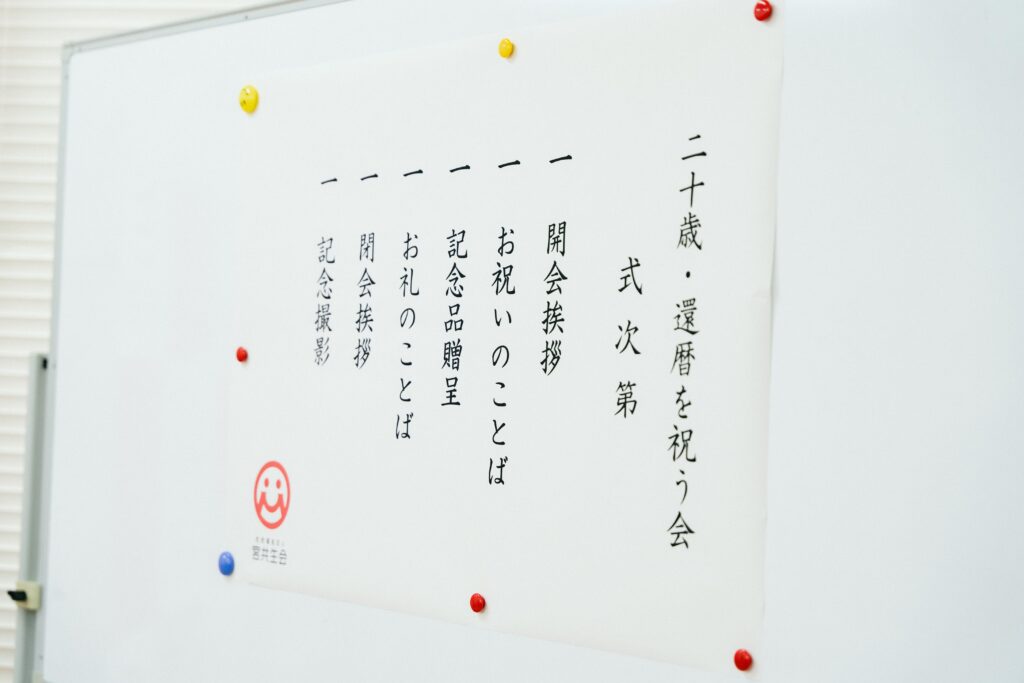 二十歳・還暦を祝う会
式次第
一 開会挨拶
一 お祝いのことば
一 記念品贈呈
一 お礼のことば
一 閉会挨拶
一 記念撮影
社会福祉法人
宮共生会